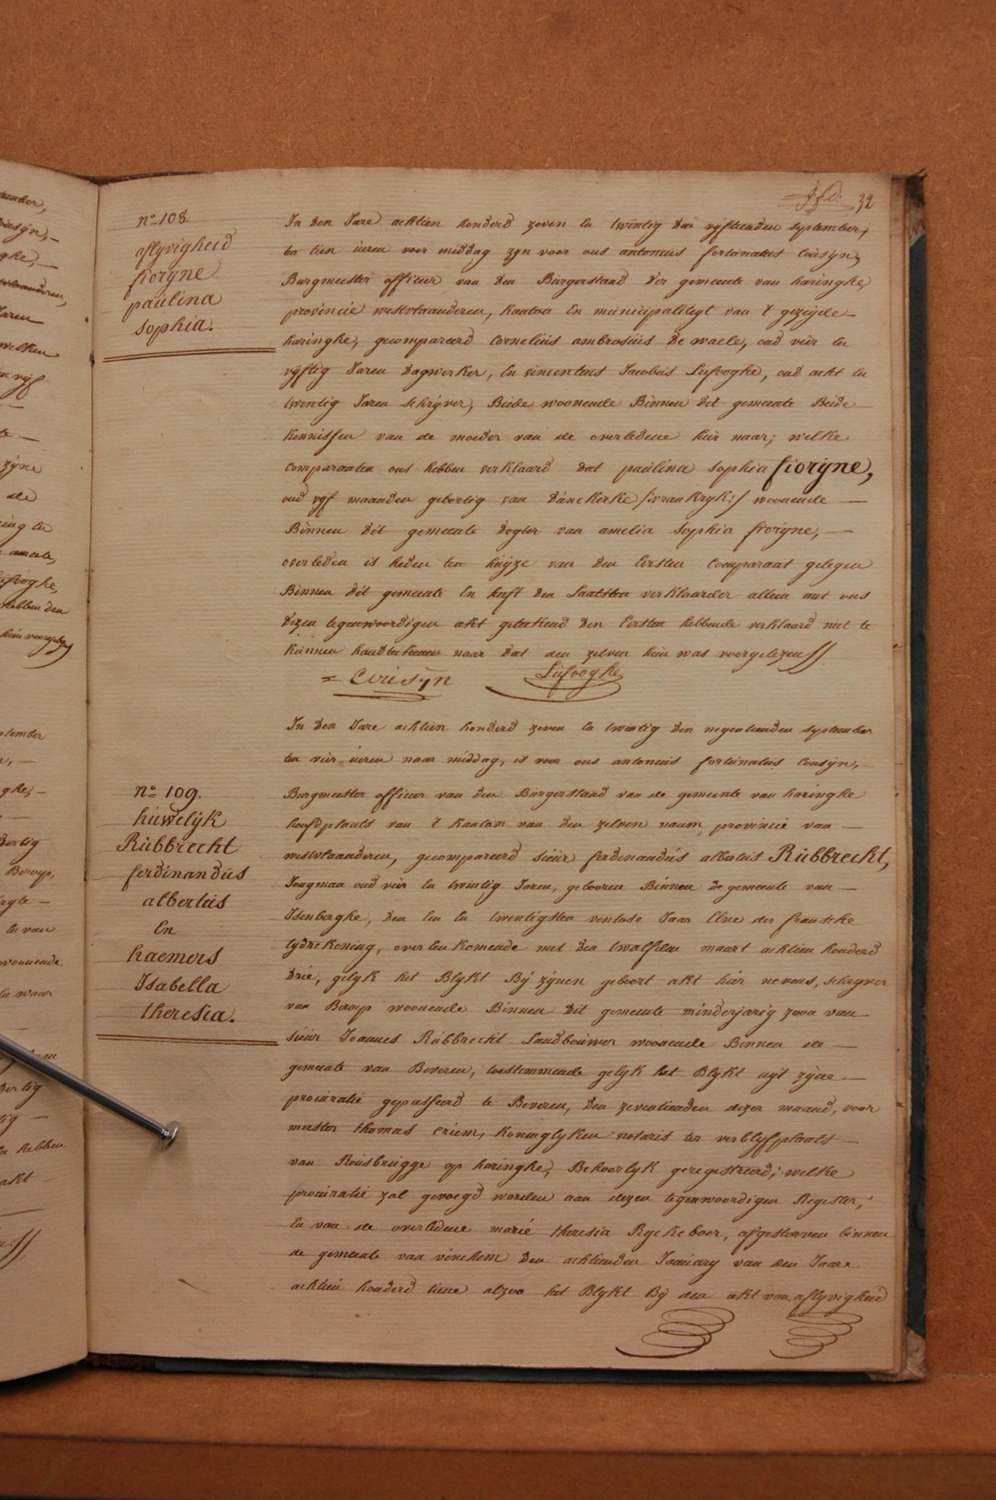 32
n° 108.
aflyvigheid
fiorijne
paulina
sophia.
In den Jare achtien honderd zeven en twintig den vyftienden september,
ten tien uren voor middag zyn voor ons antonius fortunatus Cousyn,
Burgmeester officier van den Burgerstand der gemeente van haringhe,
provincie westvlaanderen, kanton En municipaliteyt van 't gezeyde
haringhe, gecompareerd Cornelius ambrosius De waele, oud vier en
vyftig Jaren dagwerker, En vincentius Jacobus Lefooghe, oud acht en
twintig Jaren schryver, Beide woonende Binnen dit gemeente Beide
kennissen van de moeder van de overledene hier naar; welke
comparanten ons hebben verklaard dat paulina sophia fiorijne,
oud vyf maanden geboortig van Dunckerke /:vrankryk:/ woonende
Binnen dit gemeente dogter van amelia sophia fiorijne,
overleden is heden ten huyze van den Eersten Comparant gelegen
Binnen dit gemeente En heeft den Laatsten verklaarder alleen met ons
dezen tegenwoordigen akt geteekend den Eersten hebbende verklaard niet te
kunnen handteekenen naar dat den zelven hun was voorgelezen //
Cousyn
Lefooghe
n° 109.
huwelijk
Rubbrecht
ferdinandus
albertus
En
haemers
Isabella
theresia.
In den Jare achtien honderd zeven en twintig den negentienden september
ten vier uren naar middag, is voor ons antonius fortunatus Cousyn,
Borgmeester officier van den Burgerstand van de gemeente van haringhe
hoofdplaats van 't kanton van den zelven naam, provincie van
westvlaanderen, gecompareerd sieur ferdinandus albertus Rubbrecht,
Jongman oud vier en twintig Jaren, geboren Binnen de gemeente van
Isenberghe, den een en twentigsten ventose Jaar Elve der fransche
tydrekening, over een komende met den twalfden maart achtien honderd
drie, gelyk het Blykt By zijnen geboort akt hier nevens, schryver
van Beroep woonende Binnen dit gemeente minderjarig zoon van
sieur Joannes Rubbrecht Landbouwer woonende Binnen de
gemeente van Beveren, toestemmende gelyk het Blykt uyt zijne
procuratie gepasseerd te Beveren, den zeventienden dezer maand, voor
meester thomas Criem, koninglyken notaris ter verblyfplaats
van Rousbrugge op haringhe, Behoorlyk geregistreerd; welke
procuratie zal gevoegd worden aan dezen tegenwoordigen Register,
En van de overledene marie theresia Ryckeboer, afgestorven binnen
de gemeente van vinchem den achtienden January van den Jaare
achtien honderd tiene alzoo het Blykt By den akt van aflyvigheid